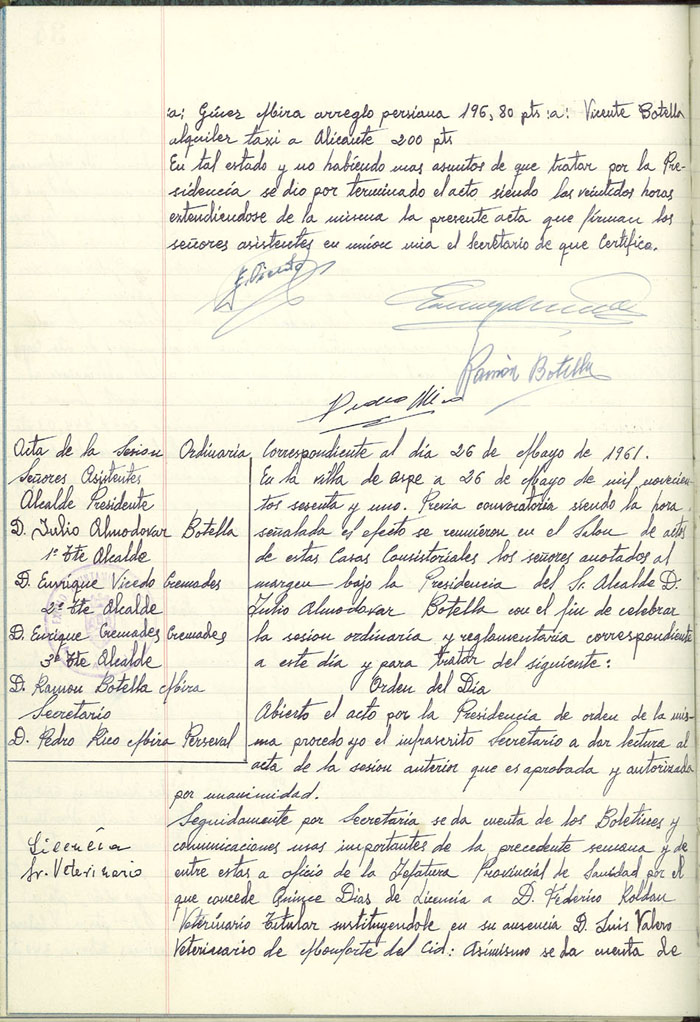 :a: Ginez Mira arreglo persiana 196,80 pts :a: Vicente Botella
alquiler taxi a Alicante 200 pts
En tal estado y no habiendo mas asuntos de que tratar por la Pre-
sidencia se dio por terminado el acto siendo las veintidos horas
extendiendose de la misma la presente acta que firman los
señores asistentes en union mia el Secretario de que Certifico.
E. Vicedo
Ramón Botella
Pedro Rico
Acta de la Sesion Ordinaria Correspondiente al día 26 de Mayo de 1961.
Señores Asistentes
Alcalde Presidente
D. Julio Almodovar Botella
1º Tte Alcalde
D. Enrique Vicedo Cremades
2º Tte Alcalde
D. Enrique Cremades Cremades
3º Tte Alcalde
D. Ramon Botella Mira
Secretario
D. Pedro Rico Mira Perseval
En la villa de aspe a 26 de Mayo de mil novecien-
tos sesenta y uno. Previa convocatoria siendo la hora
señalada el efecto se reunieron en el Salon de actos
de estas Casas Consistoriales los señores anotados al
margen bajo la Presidencia del Sr. Alcalde D.
Julio Almodavar Botella con el fin de celebrar
la sesion ordinaria y reglamentaria correspondiente
a este día y para tratar del siguiente:
Orden del Día
Abierto el acto por la Presidencia de orden de la mis-
ma procedo yo el infrascrito Secretario a dar lectura al
acta de la sesion anterior que es aprobada y autorizada
por unanimidad.
Licencia
Sr. Veterinario
Seguidamente por Secretaria se da cuenta de los Boletines y
comunicaciones mas importantes de la precedente semana y de
entre estas a oficio de la Jefatura Provincial de Sanidad por el
que concede Quince Dias de Licencia a D. Federico Roldan
Veterinario Titular sustituyendole en su ausencia D. Luis Valero
Veterinario de Monforte del Cid: Asimismo se da cuenta de